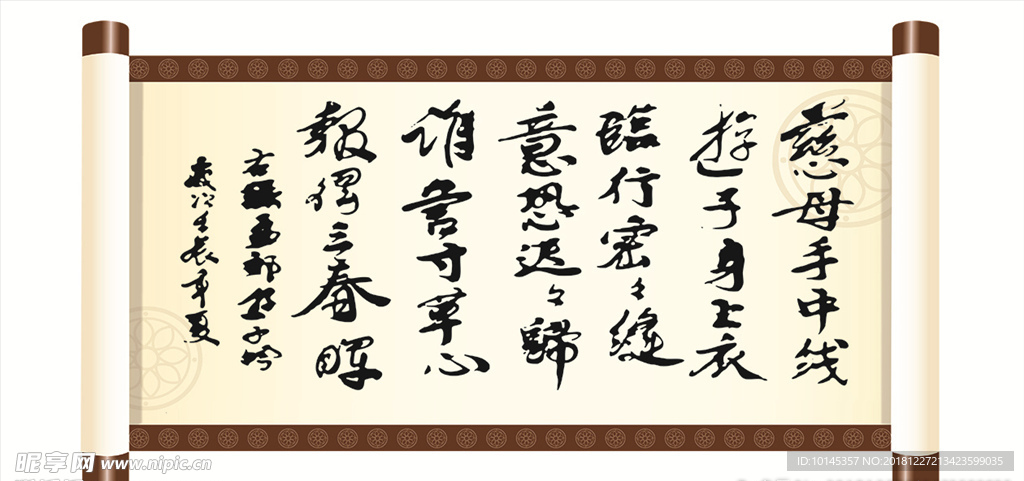 慈母手中线
遊子身上衣
臨行密々縫
意恐迟々歸
谁言寸草心
報得三春暉
右孟郊游子吟
歲次壬辰年夏
昵享网 www.nipic.cn
ID:10145357 NO:20181227213423599035